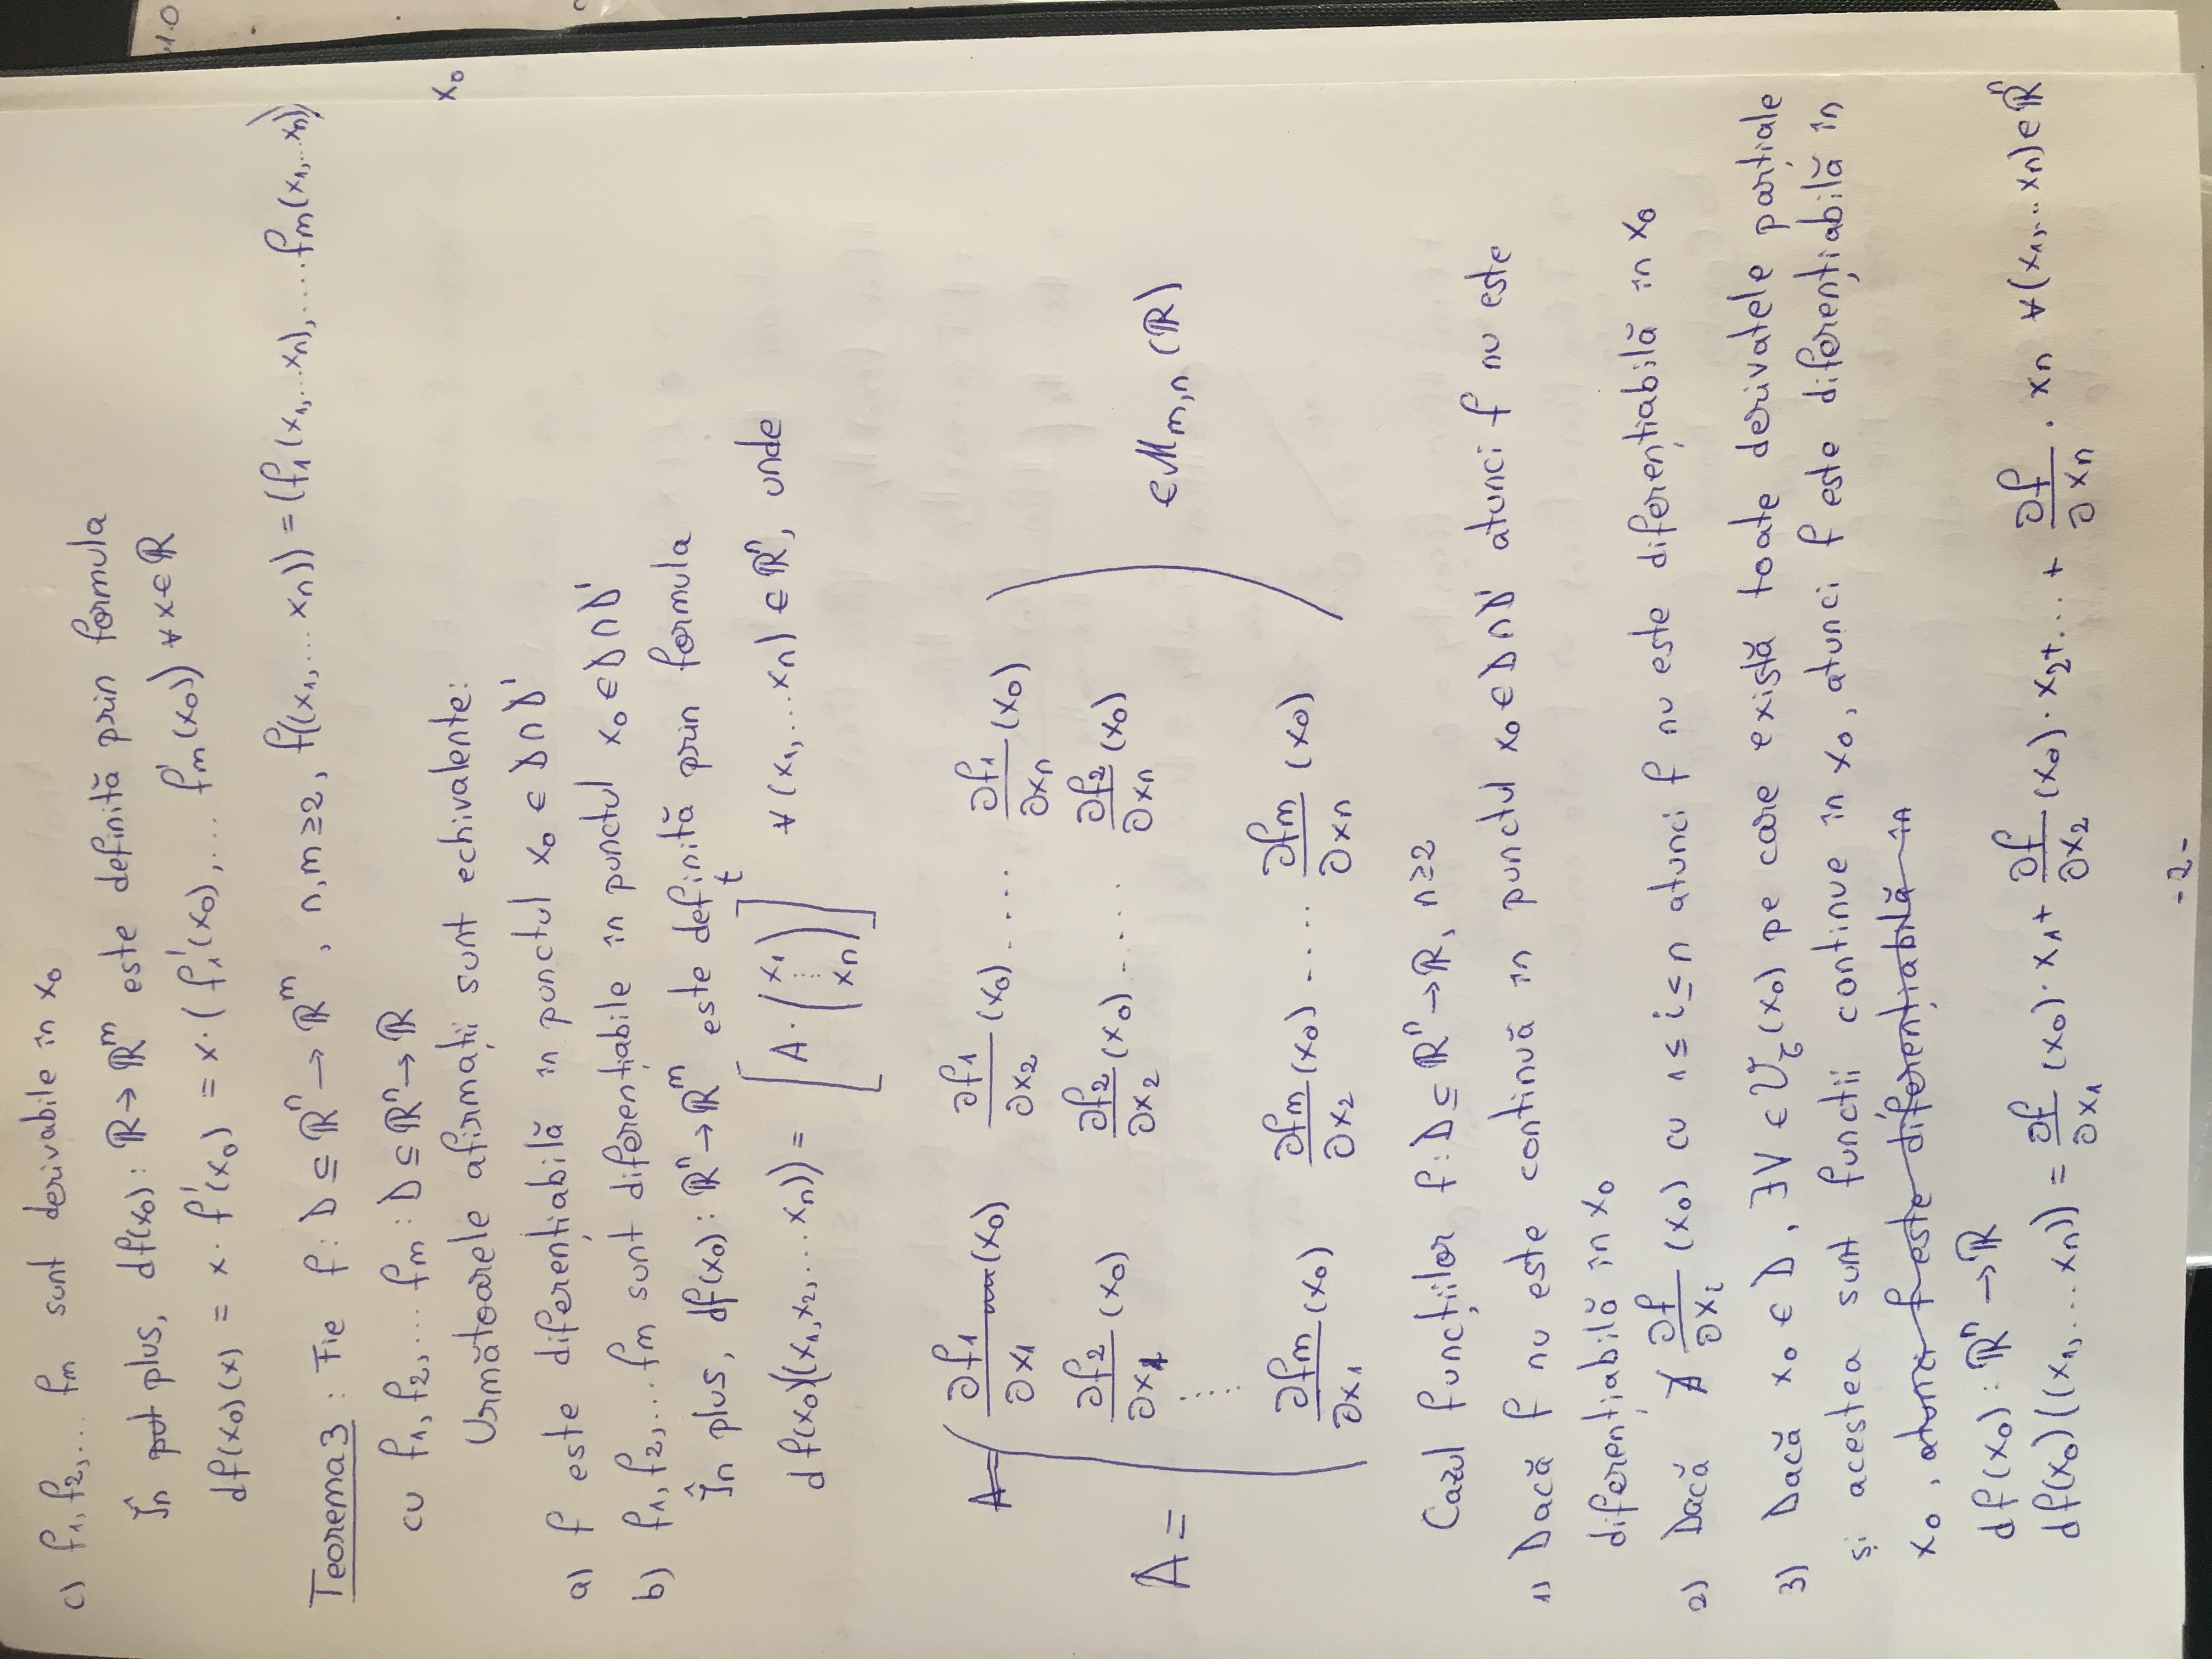 c) f₁, f₂, ... fm sunt derivabile în x₀
În plus, df(x₀) : ℝ → ℝᵐ este definită prin formula
df(x₀)(x) = x · f'(x₀) = x · (f₁'(x₀), ... fm'(x₀)) ∀ x ∈ ℝ
Teorema 3 : Fie f : D ⊆ ℝⁿ → ℝᵐ, n,m ≥ 2, f((x₁, ... xn)) = (f₁(x₁, ... xn), .... fm(x₁, ... xn))
cu f₁, f₂, ... fm : D ⊆ ℝⁿ → ℝ
x₀
Următoarele afirmații sunt echivalente:
a) f este diferențiabilă în punctul x₀ ∈ D ∩ D'
b) f₁, f₂, ... fm sunt diferențiabile în punctul x₀ ∈ D ∩ D'
În plus, df(x₀) : ℝⁿ → ℝᵐ este definită prin formula
df(x₀)((x₁, x₂, ... xn)) = [A · (x₁ ⋮ xn)]ᵗ ∀ (x₁, ... xn) ∈ ℝⁿ, unde
∂f₁/∂x₁ (x₀) ∂f₁/∂x₂ (x₀) .... ∂f₁/∂xn (x₀)
∂f₂/∂x₁ (x₀) ∂f₂/∂x₂ (x₀) ..... ∂f₂/∂xn (x₀)
A = ⋮ ∈ Mm,n (ℝ)
∂fm/∂x₁ (x₀) ∂fm/∂x₂ (x₀) ..... ∂fm/∂xn (x₀)
Cazul funcțiilor f : D ⊆ ℝⁿ → ℝ, n ≥ 2
1) Dacă f nu este continuă în punctul x₀ ∈ D ∩ D' atunci f nu este
diferențiabilă în x₀
2) Dacă ∄ ∂f/∂xi (x₀) cu 1 ≤ i ≤ n atunci f nu este diferențiabilă în x₀
3) Dacă x₀ ∈ D, ∃ V ∈ 𝒱τ(x₀) pe care există toate derivatele parțiale
și acestea sunt funcții continue în x₀, atunci f este diferențiabilă în
x₀, atunci f este diferențiabilă în
df(x₀) : ℝⁿ → ℝ
df(x₀)((x₁, ... xn)) = ∂f/∂x₁ (x₀) · x₁ + ∂f/∂x₂ (x₀) · x₂ + ... + ∂f/∂xn · xn ∀ (x₁, ... xn) ∈ ℝⁿ
- 2 -